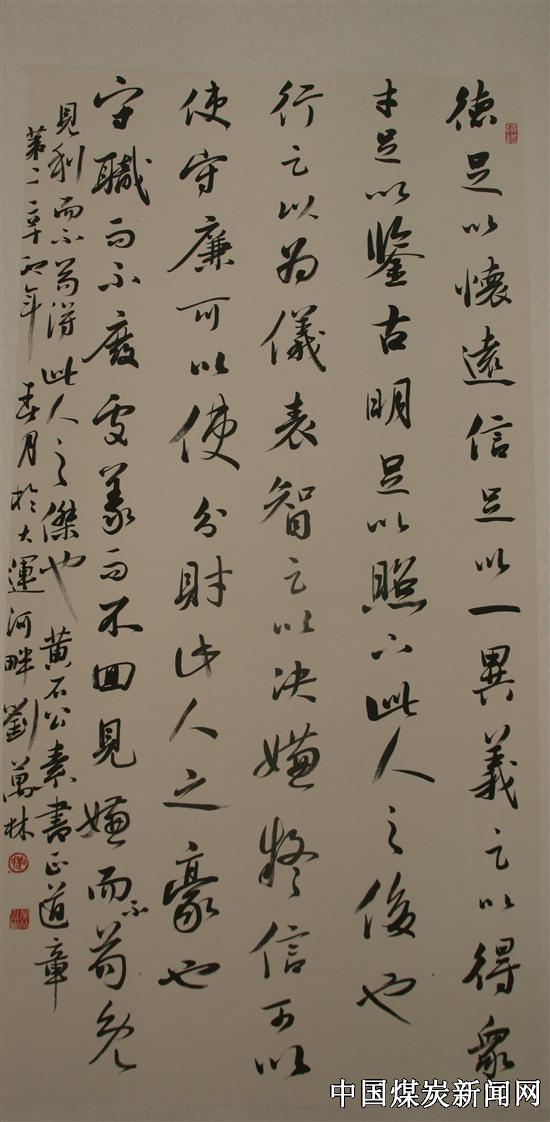 德足以懷遠信足以一異義足以得眾
才足以鑒古明足以照下此人之俊也
行足以為儀表智足以决嫌疑信可以
使守廉可以使分財此人之豪也
守職而不廢處義而不回見嫌而不苟免
見利而不苟得此人之傑也 黄石公素書正道章
第二 辛卯年春月於大運河畔劉萬林
中国煤炭新闻网